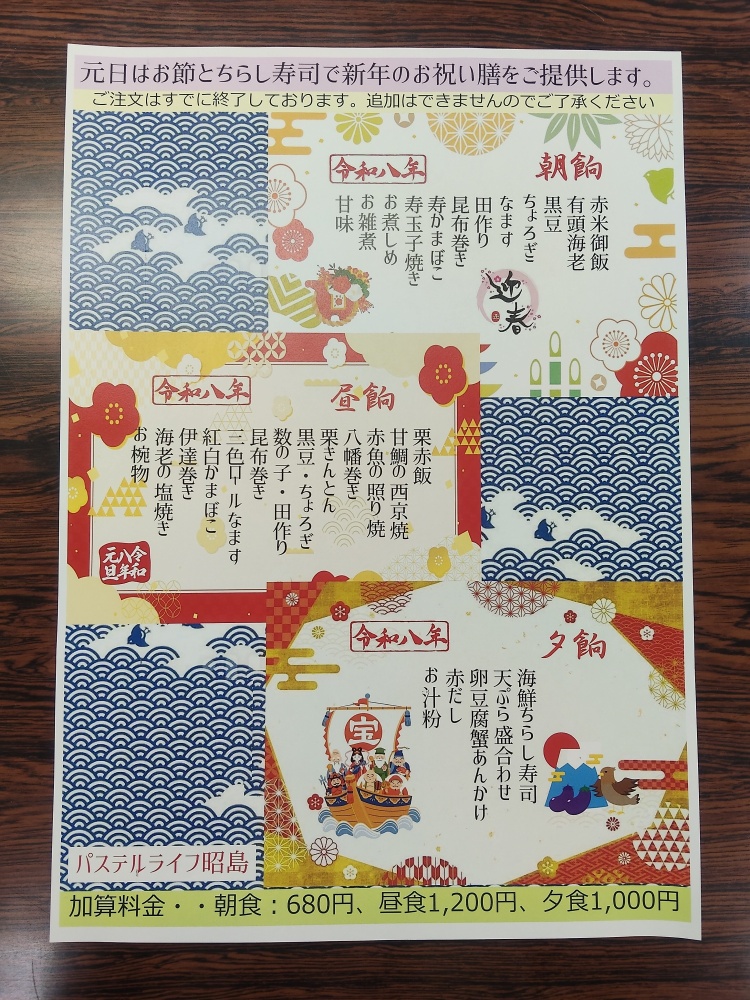 元日はお節とちらし寿司で新年のお祝い膳をご提供します。
ご注文はすでに終了しております。追加はできませんのでご了承ください
令和八年
朝餉
赤米御飯
有頭海老
黒豆
ちょろぎ
なます
田作り
昆布巻き
寿かまぼこ
寿玉子焼き
お煮しめ
お雑煮
甘味
迎春
令和八年
昼餉
栗赤飯
甘鯛の西京焼
赤魚の照り焼
八幡巻き
栗きんとん
黒豆・ちょろぎ
数の子・田作り
昆布巻き
三色ロールなます
紅白かまぼこ
伊達巻き
海老の塩焼き
お椀物
令和
八年
元旦
令和八年
夕餉
海鮮ちらし寿司
天ぷら盛合わせ
卵豆腐蟹あんかけ
赤だし
お汁粉
宝
パステルライフ昭島
加算料金・・朝食：680円、昼食1,200円、夕食1,000円